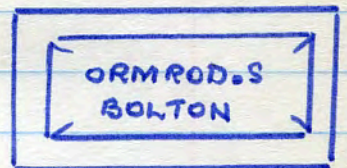 ORMROD.S
BOLTON